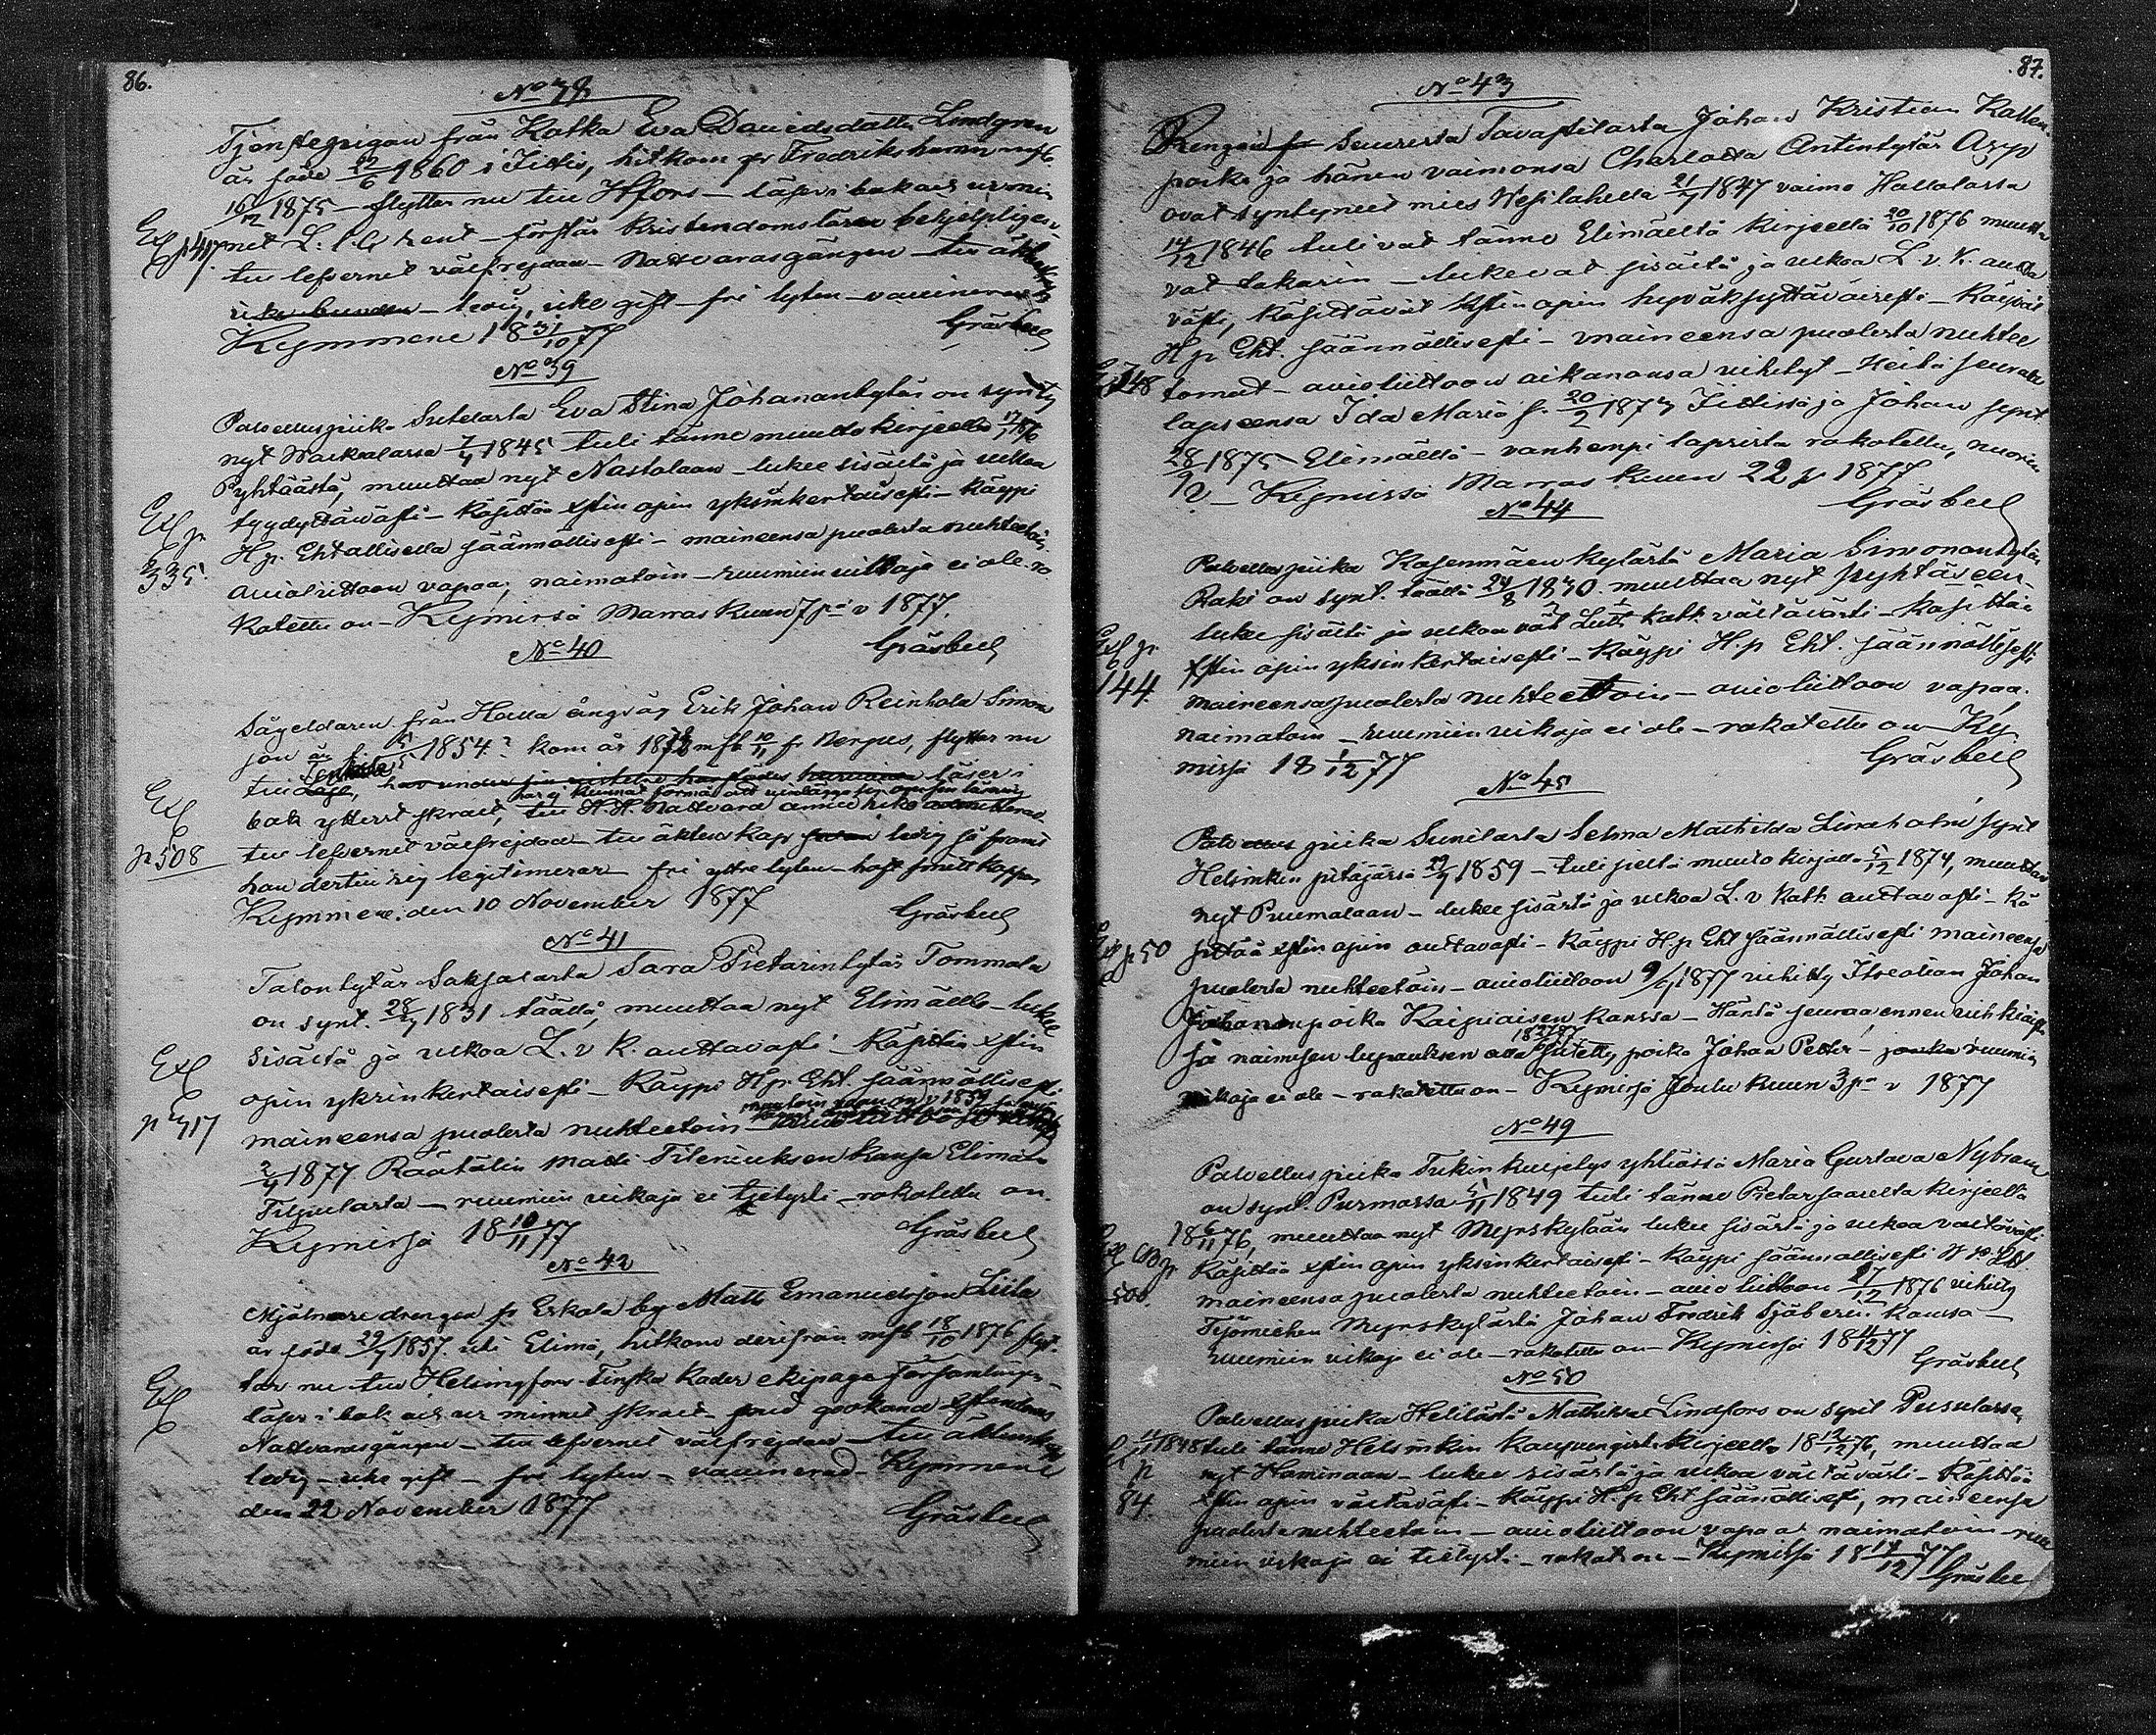 86.
No 38
Tjenstepigan från Kotka Eva Davidsdotter Lindgren
är född 22/6 1860 i Jittis, hitkom fr Fredrikshamn mfb
16/12 1875 – flyttar nu till Hfors – läser i bok och ur min
Exl p 417. net L. l. C rent – förstår kristendomsläran behjelpligen
till lefvernet välfrejdad – Nattvardsgången – till äktenskap
icke bunden – ledig, icke gift – fri lyten – vaccinerad
Kymmene 18 31/10 77 Gräsbeck
No 39
Palvelluspiika Sutelasta Eva Stina Johanantytär on synty
nyt Walkealassa 7/4 1845 tuli tänne muuttokirjeella 17/1 1876
Pyhtäästä, muuttaa nyt Nastolaan – lukee sisältä ja ulkoa
tyydyttäwästi – Käsittää xstin opin yksinkertaisesti – Käypi
Exl p 335. H.p. Ehtollisella säännöllisesti – maineensa puolesta nuhteetoin
avioliittoon vapaa, naimatoin – ruumiin vikoja ei ole – ro
kotettu on – Kymissä Marras Kuun 7 pä v 1877.
Gräsbeck
No 40
Sågeldaren från Halla ångsåg Erik Johan Reinhold Simons
son är f. 5/5 1854? kom år 1873 mfb 10/11 fr Nerpes, flyttar nu
till läser i
har ej kunnat förmås att uppvisa sin läsning
bok ytterst skralt, till H. H. Nattvard ännu icke admitterad
Exl p 508 till lefvernet välfrejdad – till äktenskap ledig så framt
han dertill sig legitimerar – fri yttre lyten – haft smittkoppor
Kymmene den 10 November 1877 Gräsbeck
No 41
Talontytär Saksalasta Sara Pietarintytär Tommola
on synt. 28/3 1831 täällä, muuttaa nyt Elimäelle – lukee
Exl p 417 sisältä ja ulkoa L. v K. auttavasti – Käsittää xstin
opin yksinkertaisesti – Käypi H.p. Eht. säännöllisesti
maineensa puolesta nuhteetoin –
2/4 1877 Räätälin Matti Tileniuksen kanssa Elimään
– ruumiin vikoja ei tietysti – rokotettu on.
Kymissä 18 10/11 77 Gräsbeck
No 42
Mjölnaredrengen fr Eskola by Matts Emanuelsson Liila
är född 29/7 1857 uti Elimä, hitkom derifrån mfb 18/10 1876 flyt-
tar nu till Helsingfors Finska Kader ekipage Församling –
Exl läser i bok och ur minnet skralt – god godkänd xstendom
Nattvardsgången – till lefvernet välfrejdad – till äktenskap
ledig – icke gift – fri lyten – vaccinerad – Kymmene
den 22 November 1877 Gräsbeck
87.
No 43
Rengin Tavastilasta Johan Kristian Kallen-
poika ja hänen vaimonsa Charlotta Antintytär Asp
ovat syntyneet mies Wesilahella 21/7 1847 vaimo Hollolassa
14/12 1846 tulivat tänne Elimäeltä kirjeellä 20/10 1876 muutta
vat takasin – lukevat sisältä ja ulkoa L. v. K. autta
västi, käsittävät xstin opin hyväksyttäväisesti – käyvät
H p Eht. säännöllisesti – maineensa puolesta nuhtee
Exl 148 tomat – avioliittoon aikananansa vihityt – Heitä seuraa
lapseensa Ida Maria s. 20/2 1873 Jittissä ja Johan synt.
28/9 1875 Elimäellä – vanhempi lapsista rokotettu, nuorin
? – Kymissä Marras Kuun 22 p 1877
Gräsbeck
No 44
Palvelluspiika Kasenmäen kylästä Maria Simonantytär
Raki on synt. täällä 24/8 1830 muuttaa nyt Pyhtääseen –
lukee sisältä ja ulkoa väl Lutt. Kath. välttävästi – Käsittää
Exl p. 144. xstin opin yksinkertaisesti – Käypi H.p Eht. säännöllisesti
maineensa puolesta nuhteetoin – avioliittoon vapaa,
naimatoin – ruumiin vikoja ei ole – rokotettu on – Ky
missä 18 1/12 77 Gräsbeck
No 45
Palvelluspiika Sunilasta Selma Mathilda Lindholm synt
Helsinkin pitäjässä 29/7 1859 – tuli sieltä muuttokirjalla 5/12 1874, muuttaa
nyt Puumalaan – lukee sisältä ja ulkoa L. v Kath. auttavasti – Kä
p 50 sittää xstin opin auttavasti – Käypi H.p Eht säännöllisesti maineensa
puolesta nuhteetoin – avioliittoon 9/9 1877 vihitty Itsellisen Johan
Johananpoika Kaipiaisen kanssa – Häntä seuraa ennen vihkiäis
tä naimisen lupauksen alla siitetty poika Johan Petter – ruumin
vikoja ei ole – rokotettu on – Kymissä Joulu Kuun 3 pä v 1877
No 49
Palvelluspiika Tukin kuljetys yhtiössä Maria Gustava Nybram
on synt. Purmossa 5/11 1849 tuli tänne Pietarsaarelta kirjeellä
18 6/11 76, muuttaa nyt Myrskylään lukee sisältä ja ulkoa välttävästi
p 500. Käsittää xstin opin yksinkertaisesti – Käypi säännöllisesti H p. Eht
maineensa puolesta nuhteetoin – avioliittoon 27/12 1876 vihitty
Työmiehen Myrskylästä Johan Fredrik Sjöbergin kanssa –
ruumiin vikoja ei ole – rokotettu on – Kymissä 18 4/12 77
Gräsbeck
No 50
Palvelluspiika Helilästä Mathilda Lindfors on synt Pusulassa,
1848 tuli tänne Helsinkin kaupungista kirjeella 18 12/12 76, muuttaa
nyt Haminaan – lukee sisältä ja ulkoa välttävästi – Käsittää
p 84. xstin opin välttäväsi – Käypi H.p Eht säännöllisesti, maineensa
puolesta nuhteetoin – avioliittoon vapaa naimatoin – ruu
miin vikoja ei tietysti – rokot on – Kymissä 18 14/12 77
Gräsbeck